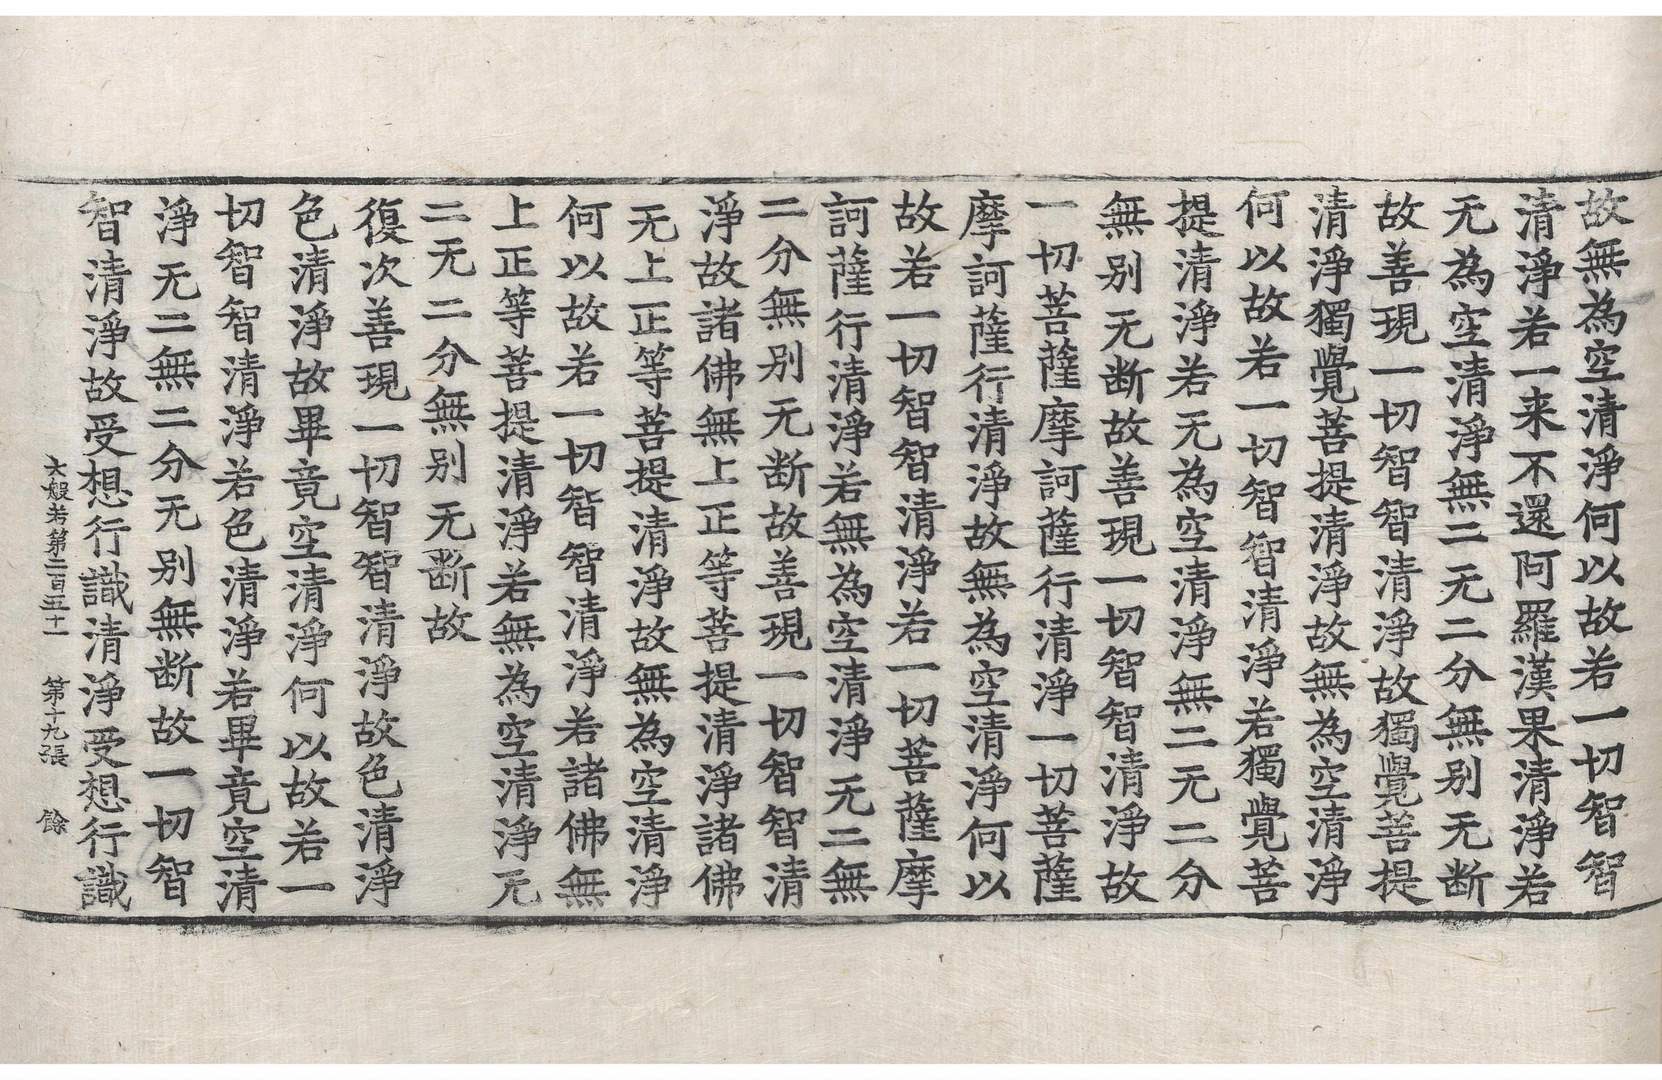 故無為空清淨何以故若一切智智
清淨若一来不還阿羅漢果清淨若
无為空清淨無二无二分無别无断
故善現一切智智清淨故獨覺菩提
清淨獨覺菩提清淨故無為空清淨
何以故若一切智智清淨若獨覺菩
提清淨若无為空清淨無二无二分
無别无断故善現一切智智清淨故
一切菩薩摩訶薩行清淨一切菩薩
摩訶薩行清淨故無為空清淨何以
故若一切智智清淨若一切菩薩摩
訶薩行清淨若無為空清淨无二無
二分無别无断故善現一切智智清
淨故諸佛無上正等菩提清淨諸佛
无上正等菩提清淨故無為空清淨
何以故若一切智智清淨若諸佛無
上正等菩提清淨若無為空清淨无
二无二分無别无断故
復次善現一切智智清淨故色清淨
色清淨故畢竟空清淨何以故若一
切智智清淨若色清淨若畢竟空清
淨无二無二分无别無断故一切智
智清淨故受想行識清淨受想行識
大般若第二百五十一　第十九張　餘